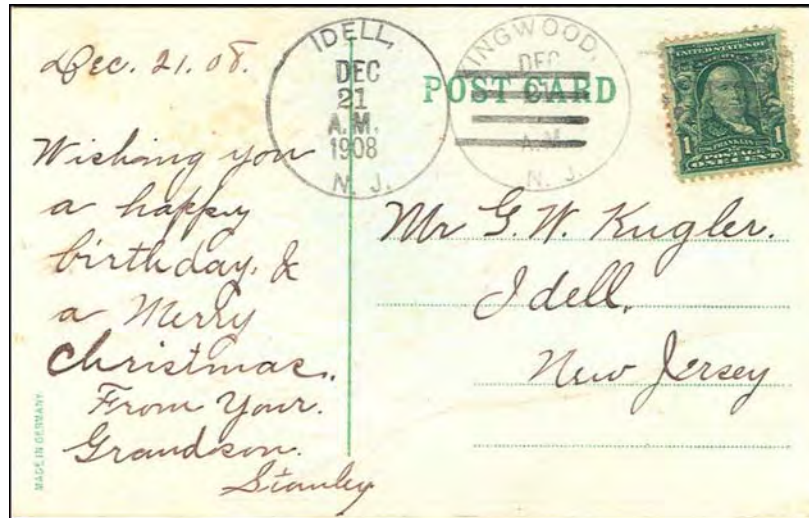 Dec. 21. 08.
Wishing you
a happy
birthday. &
a Merry
Christmas.
From Your.
Grandson.
Stanley
MADE IN GERMANY
IDELL,
DEC
21
A.M.
1908
N. J.
POST CARD
INGWOOD,
DEC
21
A.M.
N. J.
UNITED STATES OF
AMERICA
1 1
FRANKLIN
POSTAGE
ONE CENT
Mr G. W. Kugler.
Idell,
New Jersey